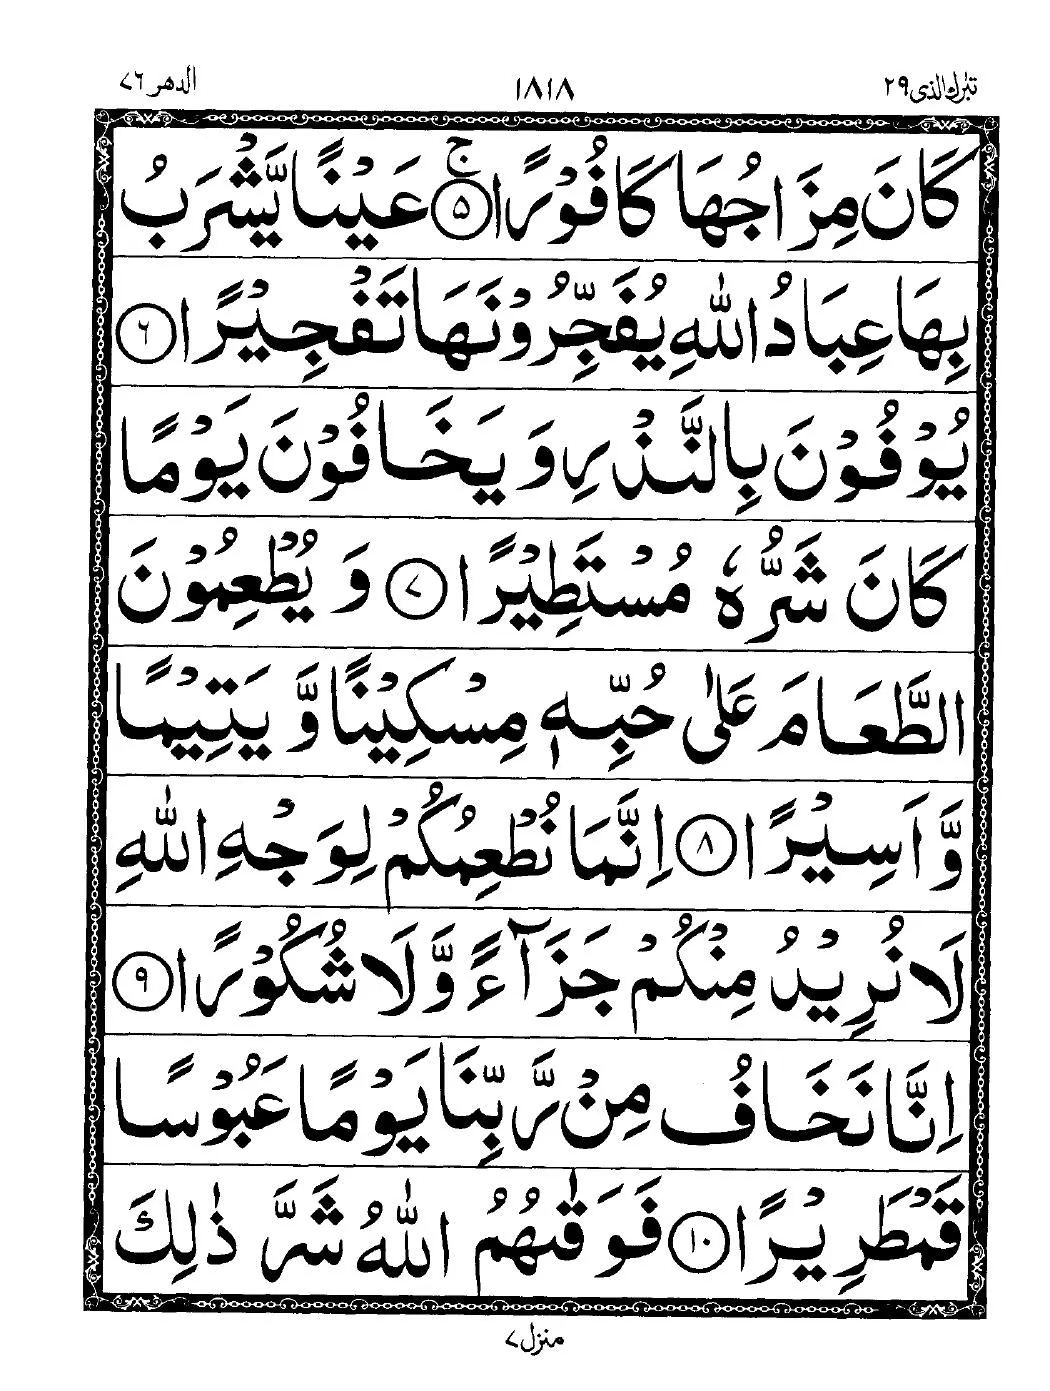 تبٰرك الذی ٢٩ ١٨١٨ الدهر ٧٦
كَانَ مِزَاجُهَا كَافُوْرًا ۚ‏﴿۵﴾ عَيْنًا يَّشْرَبُ
بِهَا عِبَادُ اللّٰهِ يُفَجِّرُوْنَهَا تَفْجِيْرًا ﴿۶﴾
يُوْفُوْنَ بِالنَّذْرِ وَ يَخَافُوْنَ يَوْمًا
كَانَ شَرُّهٗ مُسْتَطِيْرًا ﴿۷﴾ وَ يُطْعِمُوْنَ
الطَّعَامَ عَلٰى حُبِّهٖ مِسْكِيْنًا وَّ يَتِيْمًا
وَّ اَسِيْرًا ﴿۸﴾ اِنَّمَا نُطْعِمُكُمْ لِوَجْهِ اللّٰهِ
لَا نُرِيْدُ مِنْكُمْ جَزَآءً وَّ لَا شُكُوْرًا ﴿۹﴾
اِنَّا نَخَافُ مِنْ رَّبِّنَا يَوْمًا عَبُوْسًا
قَمْطَرِيْرًا ﴿۱۰﴾ فَوَقٰىهُمُ اللّٰهُ شَرَّ ذٰلِكَ
منزل ٧